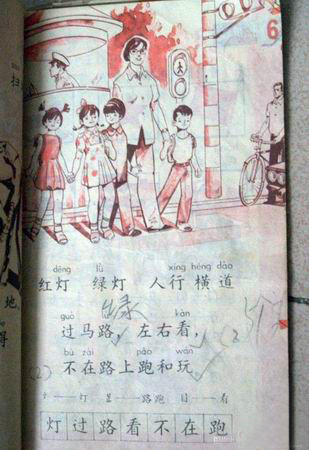 6
dēng lǜ xíng héng dào
红灯 绿灯 人行横道
绿
guò kàn
过马路，左右看，
bù zài pǎo wán
不在路上跑和玩。
灯 路跑 目 看
灯过路看不在跑
扫
地